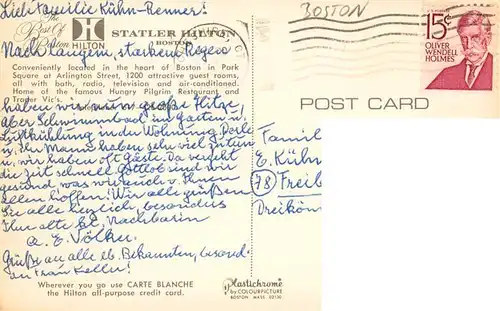 Liebe Familie Kühn-Renner!
The Best Of Boston
H
HILTON
STATLER HILTON
BOSTON
Nach langem, starken Regen
Conveniently located in the heart of Boston in Park
Square at Arlington Street, 1200 attractive guest rooms,
all with bath, radio, television and air-conditioned.
Home of the famous Hungry Pilgrim Restaurant and
Trader Vic's.
haben wir nun große Hitze,
Aber Schwimmbad im Garten u.
Luftkühlung in der Wohnung.
u. Ihr Mann haben sehr viel zu tun
u. wir haben oft Gäste. Da vergeht
die Zeit schnell. Gottlob sind wir
gesund was wir euch u. Ihnen
allen hoffen! Wir alle grüßen
Sie alle herzlich, besonders
Ihre alte Nachbarin
a. E. Völker.
Grüße an alle lb. Bekannten, besond.
an Frau Keller!
Wherever you go use CARTE BLANCHE
the Hilton all-purpose credit card.
Plastichrome
by COLOURPICTURE
BOSTON MASS 02130
BOSTON
15¢
OLIVER
WENDELL
HOLMES
POST CARD
Famil
E. Kühn
78 Freib
Dreikön